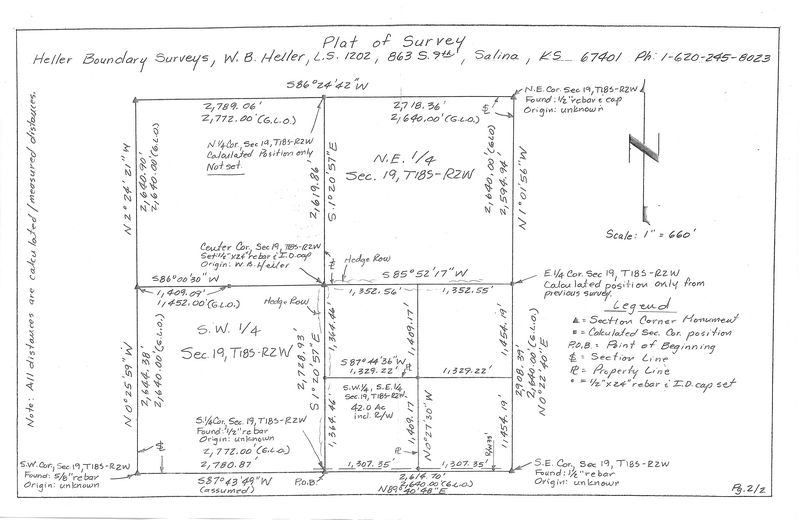 Plat of Survey
Heller Boundary Surveys, W.B. Heller, L.S. 1202, 863 S. 9th, Salina, KS 67401 Ph: 1-620-245-8023
S86°24'42"W
2,789.06'
2,772.00'(G.L.O.)
2,718.36'
2,640.00'(G.L.O.)
N.E. Cor. Sec 19, T18S-R2W
Found: 1/2" rebar & cap
Origin: unknown
N.1/4 Cor, Sec 19, T18S-R2W
Calculated Position only
Not set.
N.E. 1/4
Sec. 19, T18S-R2W
N 2° 24' 21" W
2,640.90'
2,640.00'(G.L.O.)
2,619.86'
S.1°20'57"E
2,640.00'(G.L.O.)
2,594.94'
N 1° 01' 56" W
Scale: 1" = 660'
Note: All distances are calculated/measured distances.
Center Cor., Sec 19, T18S-R2W
Set 1/2"x24" rebar & I.D. cap
Origin: W.B. Heller
Hedge Row
S86°00'30"W
S85°52'17"W
E.1/4 Cor. Sec 19, T18S-R2W
Calculated position only from
previous survey.
1,409.09'
1,452.00'(G.L.O.)
Hedge Row
1,352.56'
1,352.55'
Legend
▲ = Section Corner Monument
= Calculated Sec. Cor. position
P.O.B. = Point of Beginning
= Section Line
= Property Line
° = 1/2"x24" rebar & I.D. cap set
S.W. 1/4
Sec 19, T18S-R2W
N 0° 25' 59" W
2,644.38'
2,640.00'(G.L.O.)
2,728.93'
S 1° 20' 57" E
1,364.46'
1,409.17'
1,454.19'
2,908.39'
2,640.00'(G.L.O.)
N 0° 22' 40" E
S87°44'36"W
1,329.22'
1,329.22'
S.W.1/4, S.E.1/4
Sec. 19, T18S-R2W
42.0 Ac
incl. R/W
1,364.46'
1,409.17'
N 0° 27' 30" W
1,454.19'
S.1/4 Cor, Sec 19, T18S-R2W
Found: 1/2" rebar
Origin: unknown
2,772.00'(G.L.O.)
2,780.87'
1,307.35'
1,307.35'
S.W. Cor, Sec 19, T18S-R2W
Found: 5/8" rebar
Origin: unknown
S87°43'49"W
(assumed)
P.O.B.
2,614.70'
2,640.00'(G.L.O.)
N89°40'48"E
S.E. Cor, Sec 19, T18S-R2W
Found: 1/2" rebar
Origin: unknown
Pg. 2/2